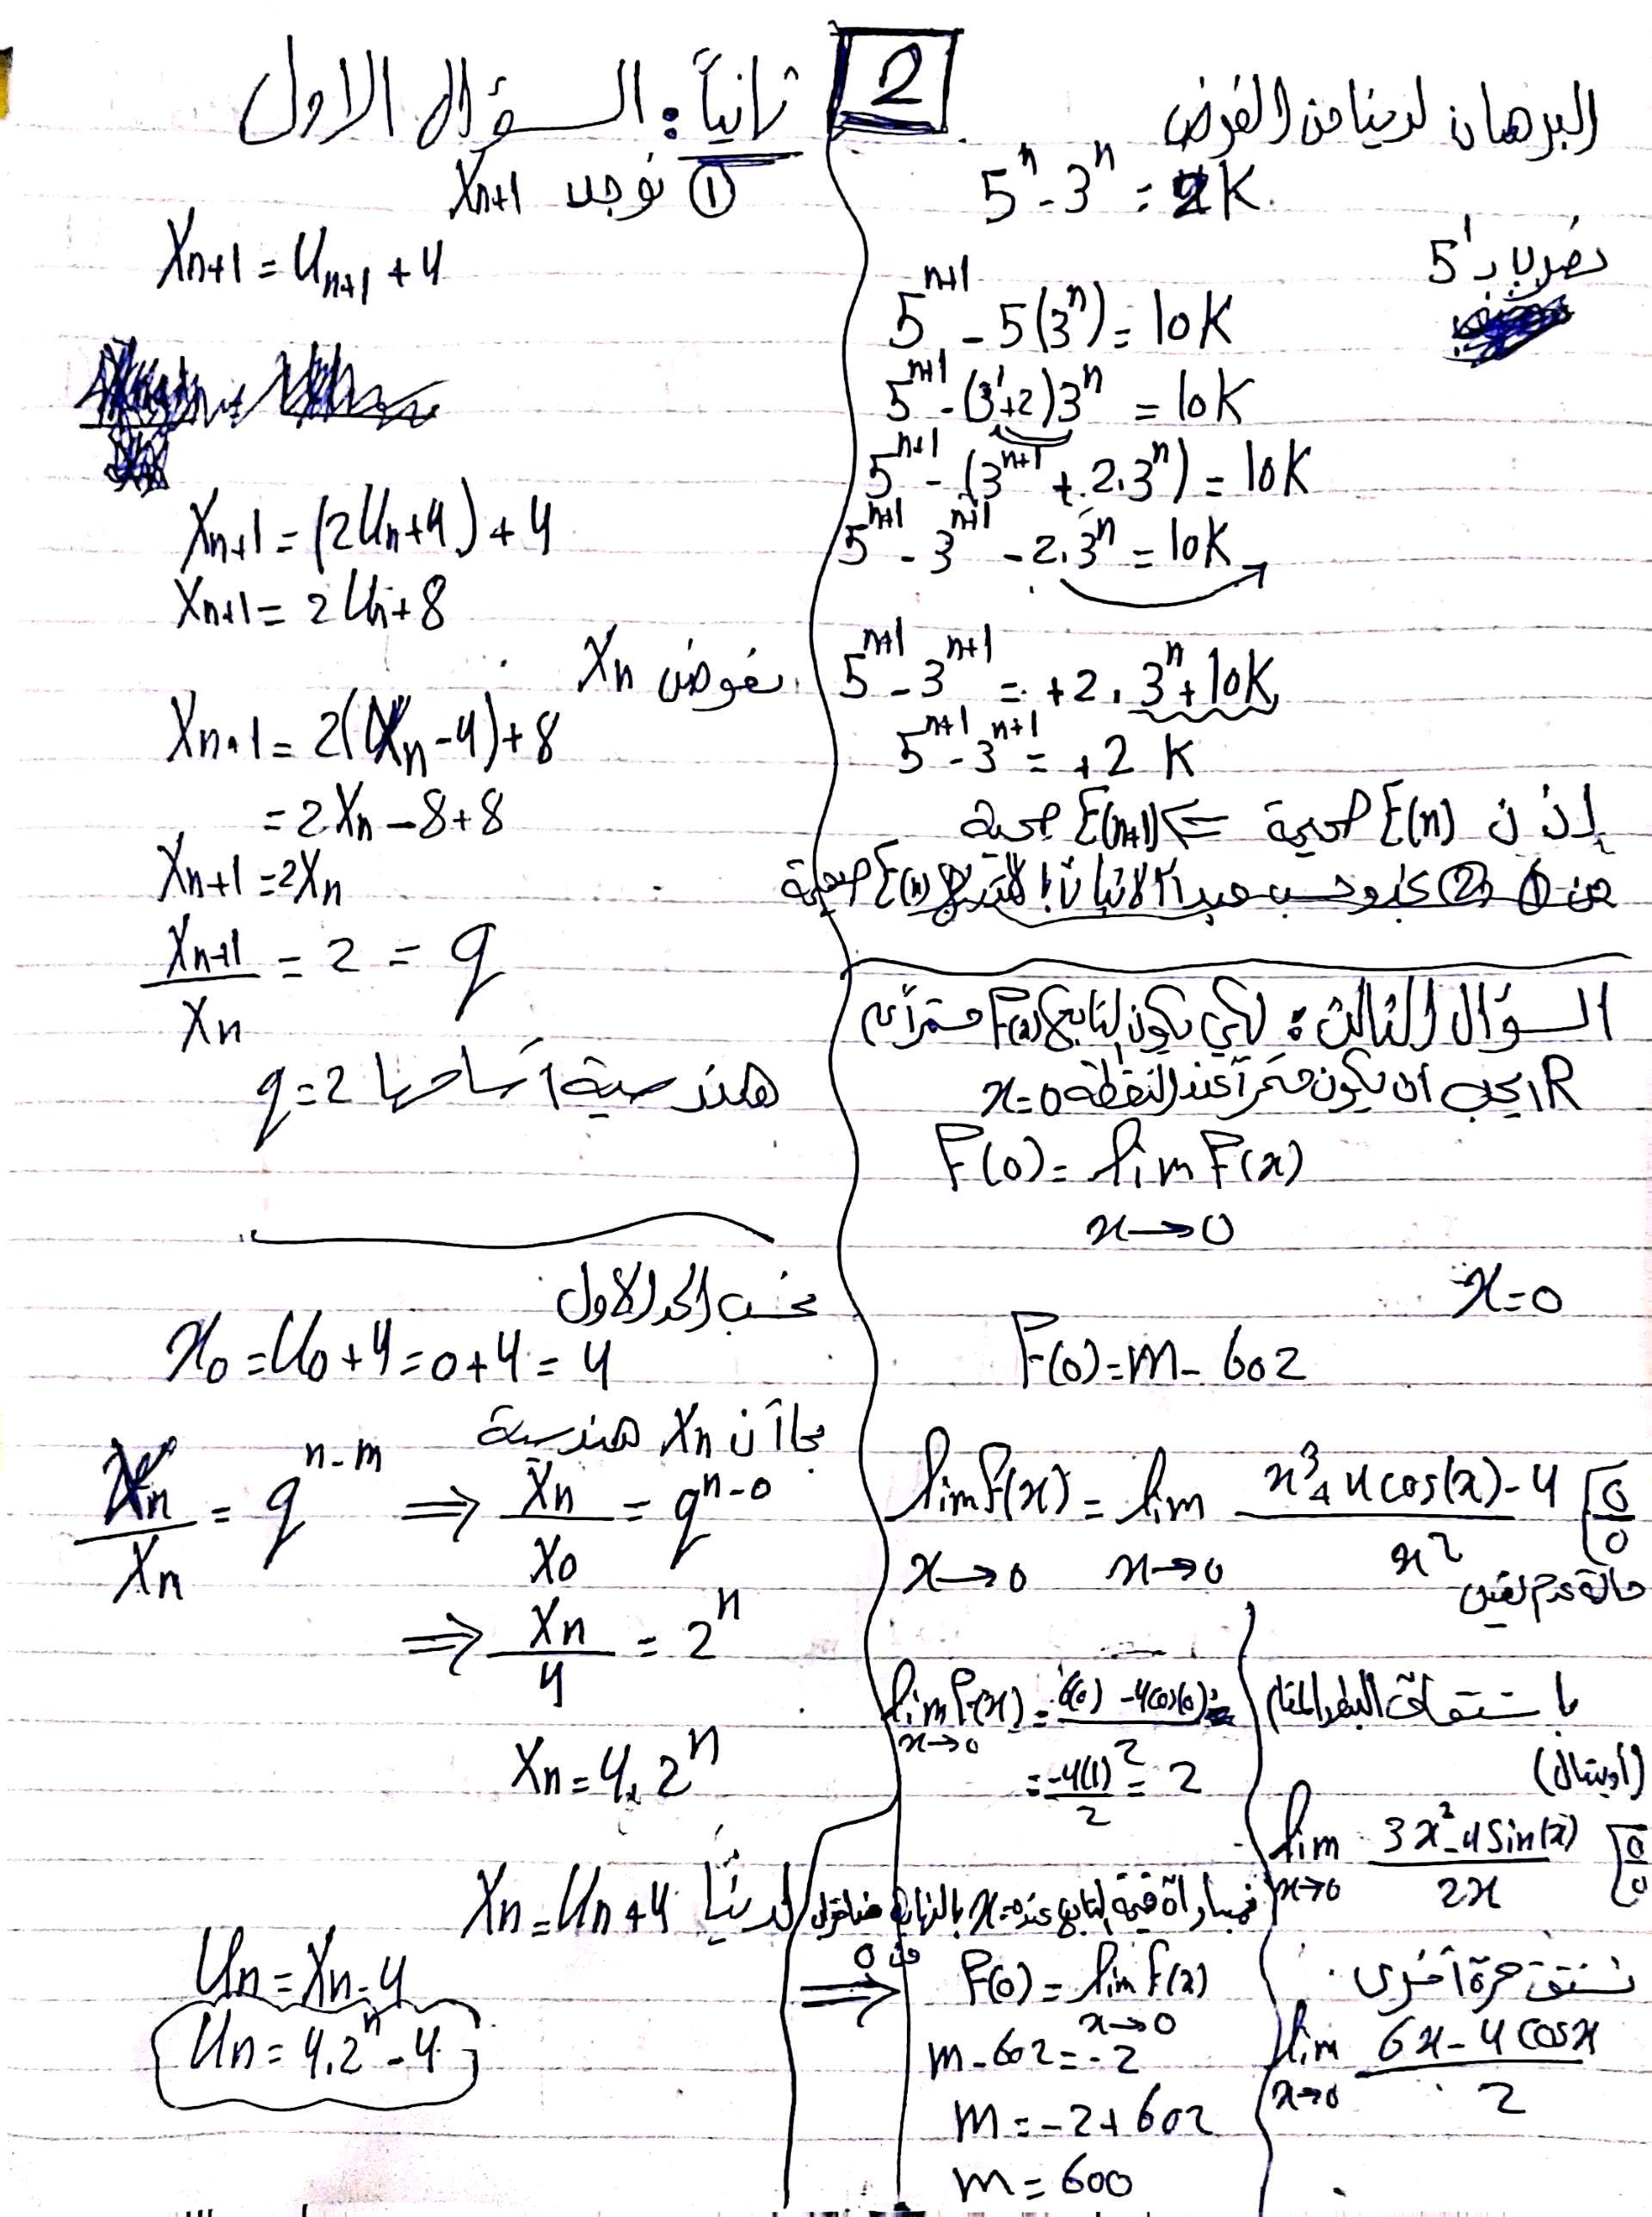 2
البرهان لدينا من الفرض
5^n - 3^n = 2K
نضرب بـ 5^1
5^{n+1} - 5(3^n) = 10K
5^{n+1} - (3^1+2)3^n = 10K
5^{n+1} - (3^{n+1} + 2.3^n) = 10K
5^{n+1} - 3^{n+1} - 2.3^n = 10K
5^{n+1} - 3^{n+1} = +2.3^n + 10K
5^{n+1} - 3^{n+1} = +2 K
إذن E(n) صحيحة ⇐ E(n+1) صحيحة
من ① ② وحسب مبدأ الاثبات بالتدريج E(n) صحيحة
السؤال الثالث: لكي يكون التابع F(x) مستمراً على
R يجب ان يكون مستمراً عند النقطة x=0
F(0) = lim F(x)
x→0
x=0
F(0) = m - 602
lim f(x) = lim \frac{x^3+4cos(x)-4}{x^2} [\frac{0}{0}
x→0 x→0
حالة عدم تعيين
باشتقاق البسط والمقام
(أوبيتال)
lim_{x→0} \frac{3x^2-4Sin(x)}{2x} [\frac{0}{0}
نشتق مرة أخرى
lim_{x→0} \frac{6x-4cosx}{2}
lim_{x→0} f(x) = \frac{6(0)-4cos(0)}{2} =
= \frac{-4(1)}{2} = 2
بمساواة قيمة التابع عند x=0 بالنهاية
من 0
F(0) = lim_{x→0} f(x)
m-602 = -2
m = -2+602
m = 600
ثانياً: السؤال الاول
① نوجد X_{n+1}
X_{n+1} = U_{n+1} + 4
X_{n+1} = (2U_n+4) + 4
X_{n+1} = 2U_n + 8
نعوض X_n
X_{n+1} = 2(X_n-4)+8
= 2X_n - 8 + 8
X_{n+1} = 2X_n
\frac{X_{n+1}}{X_n} = 2 = q
هندسية أساسها q=2
نحسب الحد الاول
x_0 = U_0+4 = 0+4 = 4
بما أن X_n هندسية
\frac{X_n}{X_m} = q^{n-m} ⇒ \frac{X_n}{X_0} = q^{n-0}
⇒ \frac{X_n}{4} = 2^n
X_n = 4.2^n
لدينا X_n = U_n+4
U_n = X_n-4
U_n = 4.2^n - 4
⇒